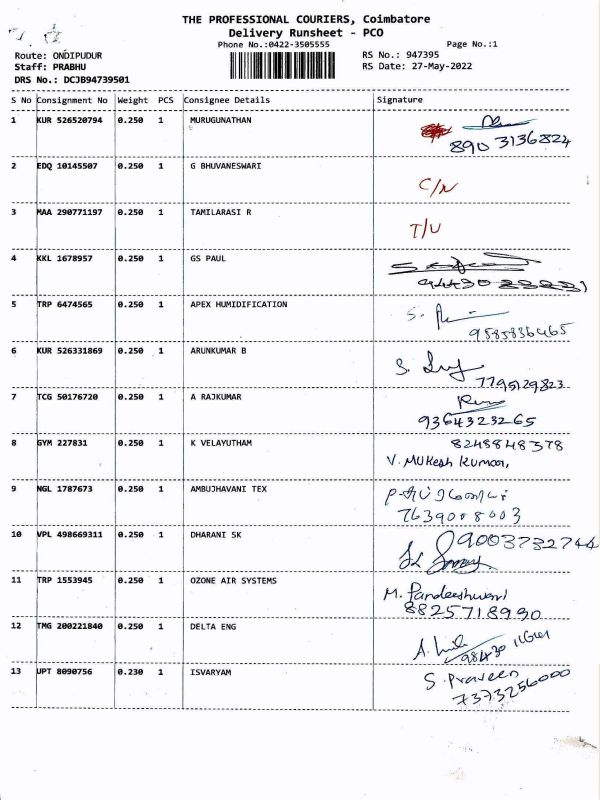 THE PROFESSIONAL COURIERS, Coimbatore
Delivery Runsheet - PCO
Phone No.:0422-3505555 Page No.:1
Route: ONDIPUDUR RS No.: 947395
Staff: PRABHU RS Date: 27-May-2022
DRS No.: DCJB94739501
S No Consignment No Weight PCS Consignee Details Signature
1 KUR 526520794 0.250 1 MURUGUNATHAN
8903136824
2 EDQ 10145507 0.250 1 G BHUVANESWARI C/N
3 MAA 290771197 0.250 1 TAMILARASI R T/U
4 KKL 1678957 0.250 1 GS PAUL
5 TRP 6474565 0.250 1 APEX HUMIDIFICATION
9585836465
6 KUR 526331869 0.250 1 ARUNKUMAR B
7795129823
7 TCG 50176720 0.250 1 A RAJKUMAR
9364323265
8 GYM 227831 0.250 1 K VELAYUTHAM 8248848378
V. Mukesh Kumar,
9 NGL 1787673 0.250 1 AMBUJHAVANI TEX
7639008003
10 VPL 498669311 0.250 1 DHARANI SK 9003732744
11 TRP 1553945 0.250 1 OZONE AIR SYSTEMS M. Pandeeshwari
8825718990
12 TMG 200221840 0.250 1 DELTA ENG
13 UPT 8090756 0.230 1 ISVARYAM S. Praveen
7373256000